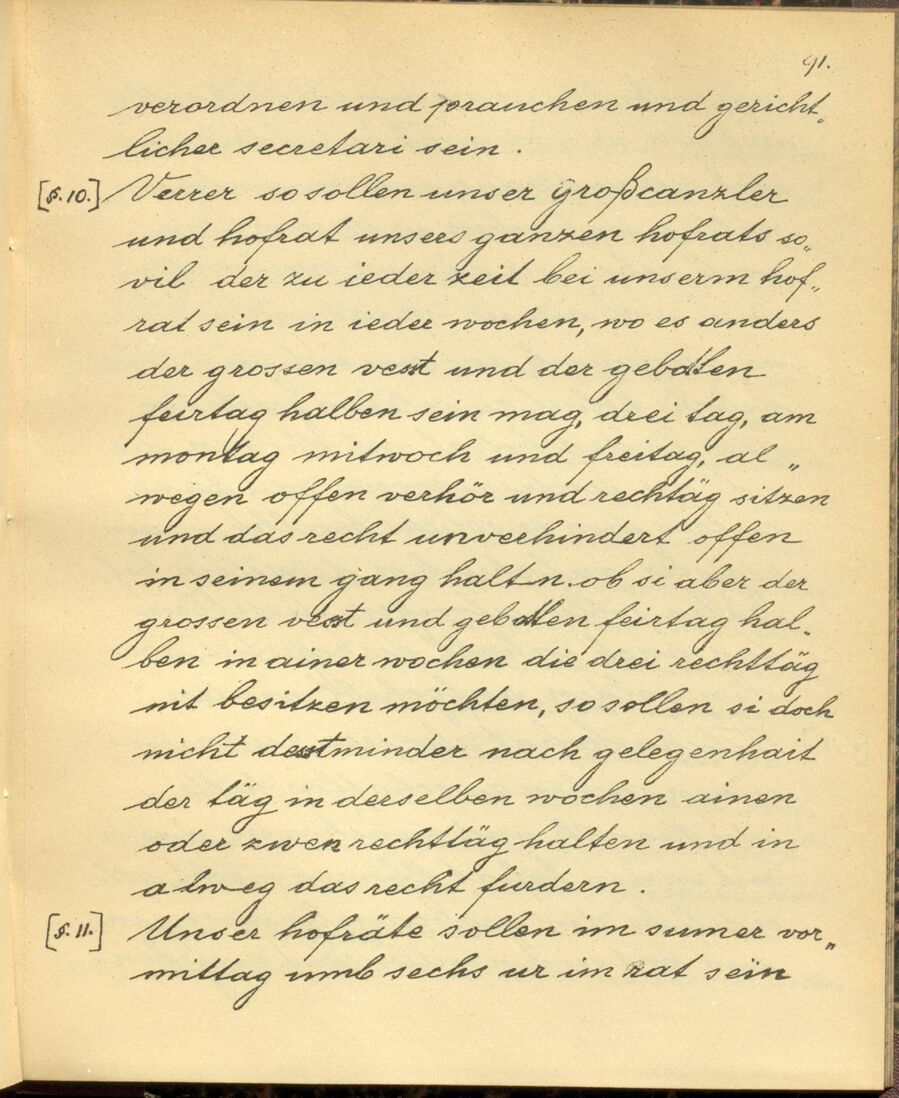 91.
verordnen und prauchen und gericht„
licher secretari sein .
[§. 10.] Verrer so sollen unser Großcanzler
und hofrat unsers ganzen hofrats so„
vil der zu ieder zeit bei unserm hof„
rat sein in ieder wochen, wo es anders
der grossen vest und der geboten
feirtag halben sein mag, drei tag, am
montag mitwoch und freitag, al„
wegen offen verhör und rechtäg sitzen
und das recht unverhindert offen
in seinem gang haltn. ob si aber der
grossen vest und geboten feirtag hal„
ben in ainer wochen die drei rechttäg
nit besitzen möchten, so sollen si doch
nicht destminder nach gelegenhait
der täg in derselben wochen ainen
oder zwen rechttäg halten und in
alweg das recht furdern .
[§. 11.] Unser hofräte sollen im sumer vor„
mittag umb sechs ur im rat sein